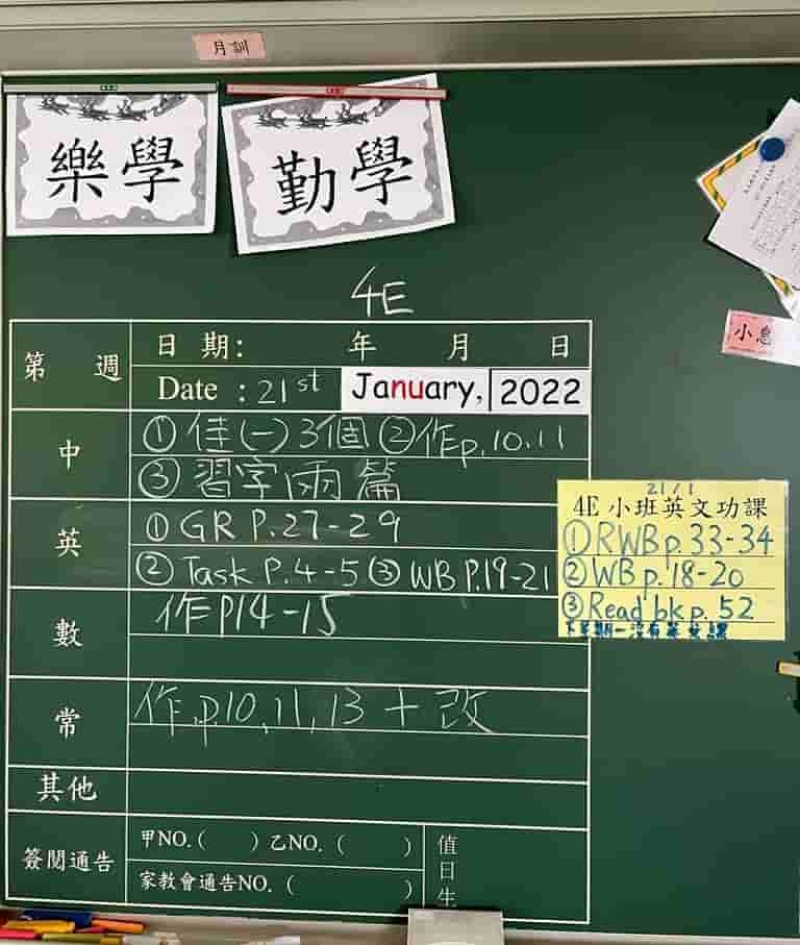 月訓
樂學
勤學
4E
第 週
日 期: 年 月 日
Date : 21st January, 2022
中
① 佳(一)3個 ②作p.10.11
③ 習字兩篇
英
① GR P.27-29
② Task P.4-5 ③ WB P.19-21
數
作P14-15
常
作.p.10,11,13 + 改
其他
簽閱通告
甲NO.( ) 乙NO. ( )
家教會通告NO. ( )
值日生
小息
21/1
4E 小班英文功課
① RWB p.33-34
② WB p.18-20
③ Read bk p. 52